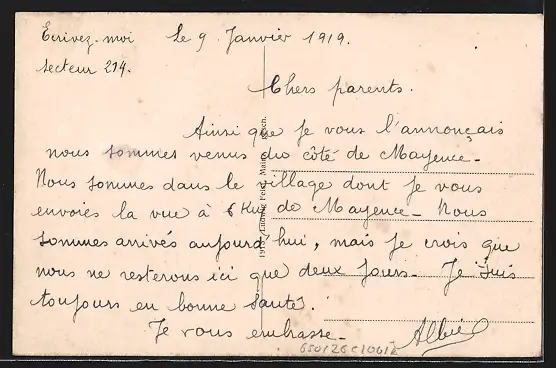 Ecrivez-moi Le 9 Janvier 1919.
secteur 214.
Chers parents.
Ainsi que je vous l'annonçais
nous sommes venus du côté de Mayence-
Nous sommes dans le village dont je vous
envoies la vue à 6 Km de Mayence- Nous
sommes arrivés aujourd'hui, mais je crois que
nous ne resterons ici que deux jours- Je suis
toujours en bonne santé.
Je vous embrasse-